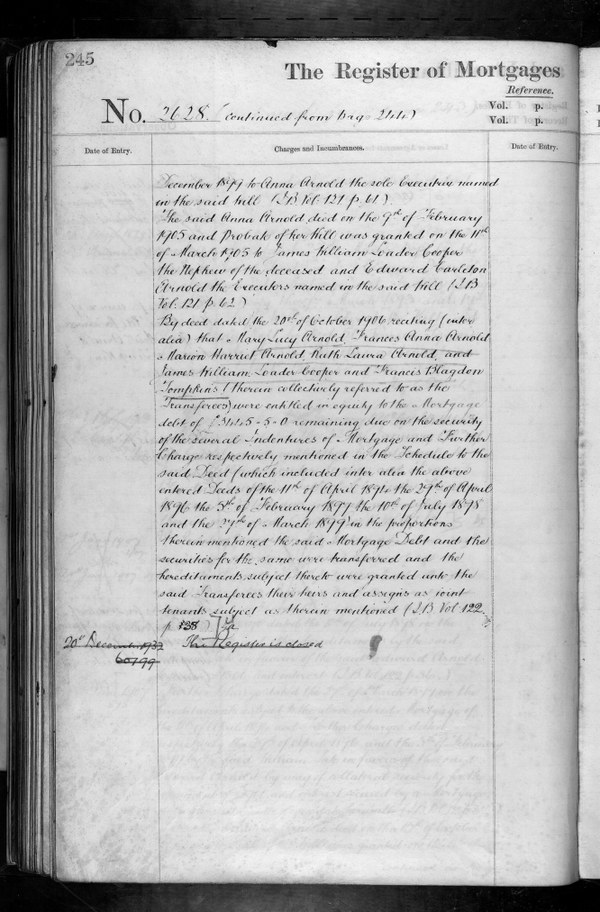 245
The Register of Mortgages
Reference.
No. 2628. (continued from page 244)
Vol. p.
Vol. p.
Date of Entry.
Charges and Incumbrances.
Date of Entry.
December 1899 to Anna Arnold the sole Executrix named
in the said Will (LB Vol. 121 p. 61)
The said Anna Arnold died on the 9th of February
1905 and Probate of her Will was granted on the 11th
of March 1905 to James William Loader Cooper
the Nephew of the deceased and Edward Carleton
Arnold the Executors named in the said Will (LB
Vol. 121 p. 62)
By deed dated the 20th of October 1906 reciting (inter
alea) that Mary Lucy Arnold, Frances Anna Arnold
Marion Harriet Arnold, Ruth Laura Arnold, and
James William Loader Cooper and Francis Blagdon
Tompkins (therein collectively referred to as the
Transferees) were entitled in equity to the Mortgage
debt of £3445-5-0 remaining due on the security
of the several Indentures of Mortgage and Further
Charge respectively mentioned in the Schedule to the
said Deed (which included inter alea the above
entered Deeds of the 11th of April 1894 the 29th of April
1896 the 3rd of February 1897 the 10th of July 1898
and the 29th of March 1899 in the proportions
therein mentioned the said Mortgage Debt and the
securities for the same were transferred and the
hereditaments subject thereto were granted unto the
said Transferees their heirs and assigns as joint
tenants subject as therein mentioned (LB Vol 122
p 138)
20th December 1932
This Register is closed
60199